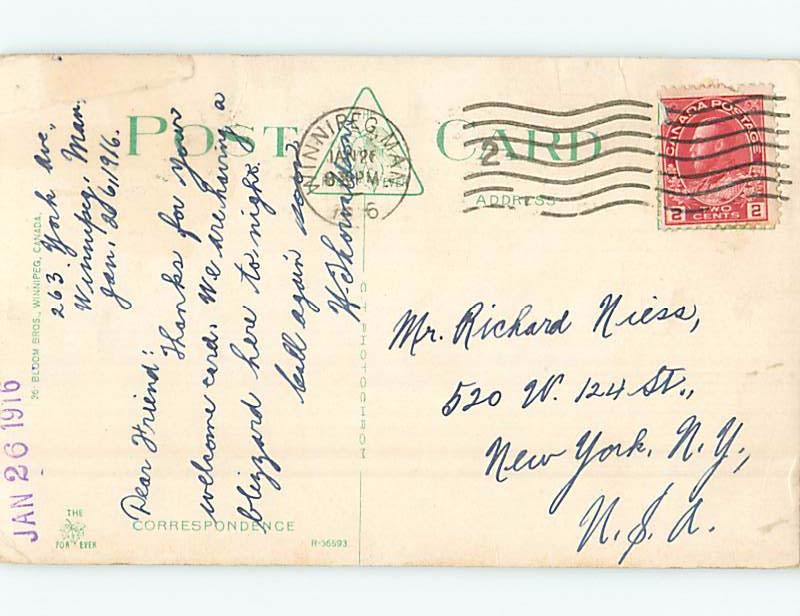 POST CARD
263 York Ave.,
Winnipeg, Man.
Jan. 26, 1916.
Dear Friend:
Thanks for your
welcome card. We are having a
blizzard here to-night.
Call again soon,
WINNIPEG, MAN
JAN 26
PM
6
2
CANADA POSTAGE
2 TWO CENTS 2
ADDRESS
Mr. Richard Niess,
520 W. 124 St.,
New York, N.Y.,
U.S.A.
36 BLOOM BROS., WINNIPEG, CANADA.
JAN 26 1916
THE
FOR EVER
CORRESPONDENCE
R-36593
CT PHOTOCHROM